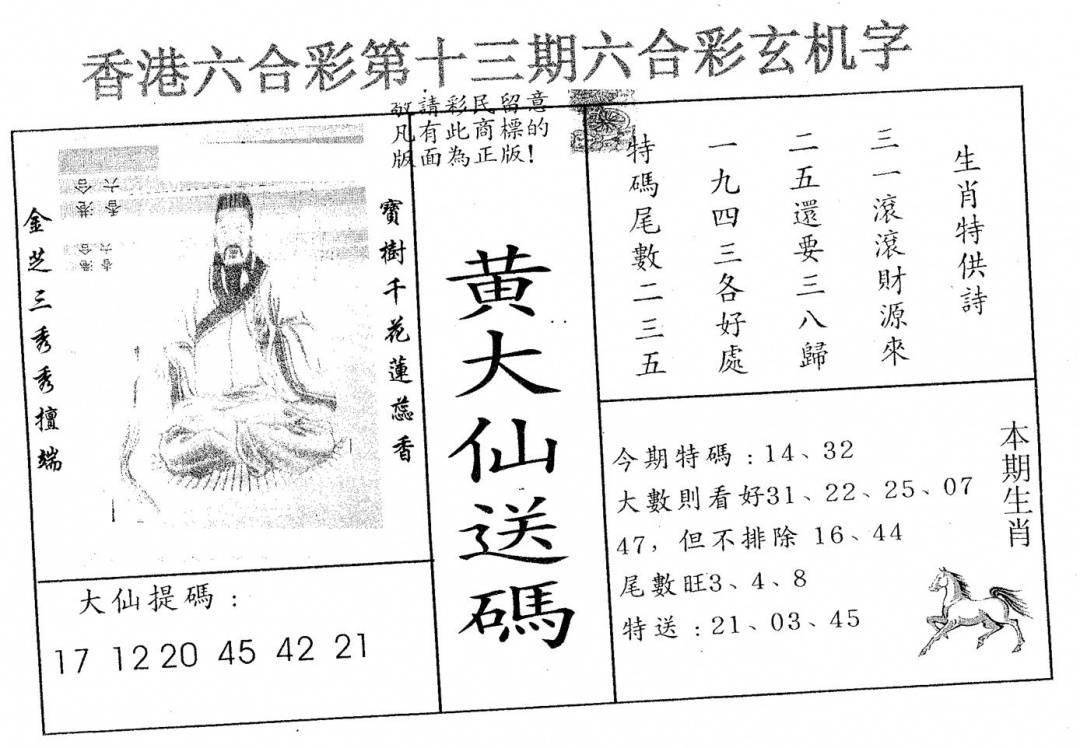 香港六合彩第十三期六合彩玄机字
敬請彩民留意
凡有此商標的
版面為正版！
生肖特供詩
三一滾滾財源來
二五還要三八歸
一九四三各好處
特碼尾數二三五
寶樹千花蓮蕊香
金芝三秀秀擅端
香港
六合
香港
六合
黃大仙送碼
本期生肖
今期特碼：14、32
大數則看好31、22、25、07
47，但不排除 16、44
尾數旺3、4、8
特送：21、03、45
大仙提碼：
17 12 20 45 42 21